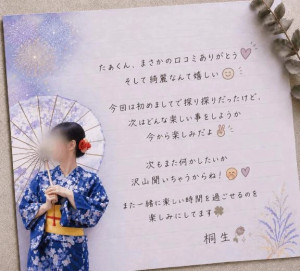 たぁくん、まさかの口コミありがとう
そして綺麗なんて嬉しい
今回は初めましてで探り探りだったけど、
次はどんな楽しい事をしようか
今から楽しみだよ
次もまた何かしたいか
沢山聞いちゃうからね！
また一緒に楽しい時間を過ごせるのを
楽しみにしてます
桐生